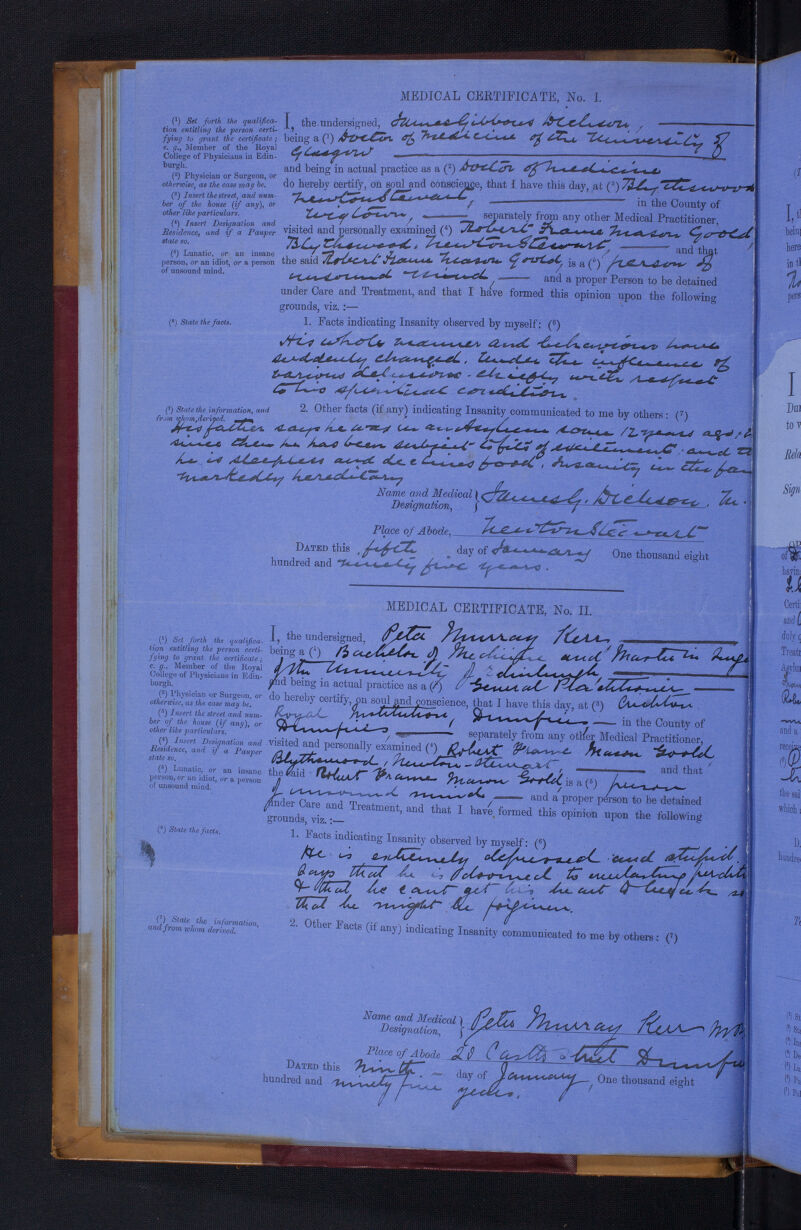 MEDICAL CERTIFICATE, No. I.
(1) Set forth the qualifica-
tion entitling the person certi-
fying to grant the certificate;
e. g., Member of the Royal
College of Physicians in Edin-
burgh.
(2) Physician or Surgeon, or
otherwise, as the case may be.
(3) Insert the street, and num-
ber of the house (if any), or
other like particulars.
(4) Insert Designation and
Residence, and if a Pauper
state so.
(5) Lunatic, or an insane
person, or an idiot, or a person
of unsound mind.
I, the undersigned, James Gibbous Dickson,
being a (1) Doctor of Medicine of the University of
Glasgow
and being in actual practice as a (2) Doctor of medicine
do hereby certify, on soul and conscience, that I have this day, at (3) Blythswood
Newton Stewart, in the County of
Wigtown, separately from any other Medical Practitioner,
visited and personally examined (4) Robert Frame Mason Goold
Blythswood, Newton Stewart, and that
the said Robert Frame Mason Goold, is a (5) person of
unsound mind, and a proper Person to be detained
under Care and Treatment, and that I have formed this opinion upon the following
grounds, viz. :—
(6) State the facts.
1. Facts indicating Insanity observed by myself: (6)
His whole manner and behaviour have
suddenly changed. Under the influence of
various delusions - chiefly with respect
to his spiritual condition.
(7) State the information, and
from whom derived.
2. Other facts (if any) indicating Insanity communicated to me by others: (7)
His father says he was in an Asylum some 12 years ago;
since then he has been subject to fits of excitement; and
he is sleepless and declines food. Insanity in the
markedly hereditary
Name and Medical Designation, } James G. Dickson.
Place of Abode, Newton Stewart
DATED this fifth day of January One thousand eight
hundred and ninety five years.
MEDICAL CERTIFICATE, No. II.
(1) Set forth the qualifica-
tion entitling the person certi-
fying to grant the certificate;
e. g., Member of the Royal
College of Physicians in Edin-
burgh.
(2) Physician or Surgeon, or
otherwise, as the case may be.
(3) Insert the street and num-
ber of the house (if any), or
other like particulars.
(4) Insert Designation and
Residence, and if a Pauper
state so.
(5) Lunatic, or an insane
person, or an idiot, or a person
of unsound mind.
I, the undersigned, Peter Murray Kerr,
being a (1) Bachelor of Medicine and Master in
of the University of Edinburgh
and being in actual practice as a (2) General Practitioner
do hereby certify, on soul and conscience, that I have this day, at (3) Crichton
Royal Institution, Dumfries in the County of
Dumfries separately from any other Medical Practitioner,
visited and personally examined (4) Robert Frame Mason Goold
Blythswood, Newton-Stewart and that
the said Robert Frame Mason Goold is a (5) person
of unsound mind and a proper person to be detained
under Care and Treatment, and that I have formed this opinion upon the following
grounds, viz. :—
(6) State the facts.
1. Facts indicating Insanity observed by myself: (6)
He is extremely depressed and stupid.
Says that he is doomed to everlasting
& that he cant get his heart to
that he might be forgiven.
(7) State the information,
and from whom derived.
2. Other Facts (if any) indicating Insanity communicated to me by others: (7)
Name and Medical Designation, } Peter Murray Kerr
Place of Abode 20 Castle Street
DATED this Ninth day of January, One thousand eight
hundred and ninety five years.